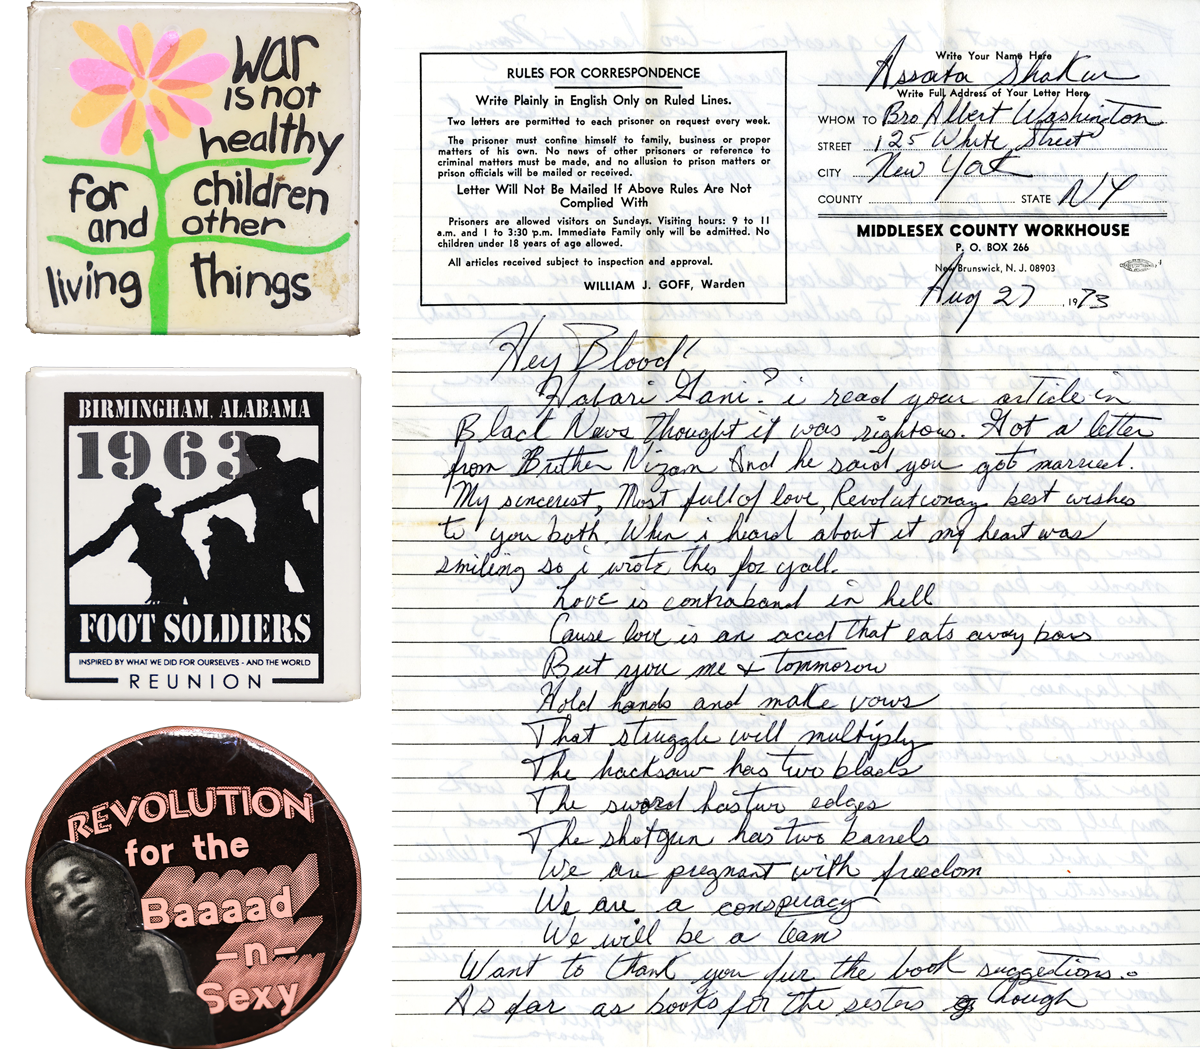 war
is not
healthy
for children
and other
living things
BIRMINGHAM, ALABAMA
1963
FOOT SOLDIERS
INSPIRED BY WHAT WE DID FOR OURSELVES - AND THE WORLD
REUNION
REVOLUTION
for the
Baaaad
-n-
Sexy
RULES FOR CORRESPONDENCE
Write Plainly in English Only on Ruled Lines.
Two letters are permitted to each prisoner on request every week.
The prisoner must confine himself to family, business or proper
matters of his own. No news of other prisoners or reference to
criminal matters must be made, and no allusion to prison matters or
prison officials will be mailed or received.
Letter Will Not Be Mailed If Above Rules Are Not
Complied With
Prisoners are allowed visitors on Sundays. Visiting hours: 9 to 11
a.m. and 1 to 3:30 p.m. Immediate Family only will be admitted. No
children under 18 years of age allowed.
All articles received subject to inspection and approval.
WILLIAM J. GOFF, Warden
Write Your Name Here
Assata Shakur
Write Full Address of Your Letter Here
WHOM TO Bro Albert Washington
STREET 125 White Street
CITY New York
COUNTY STATE NY
MIDDLESEX COUNTY WORKHOUSE
P. O. BOX 266
New Brunswick, N. J. 08903
Aug 27 1973
Hey Blood!
Habari Gani? i read your article in
Black News thought it was rightous. Got a letter
from Bruther Nizam And he said you got married.
My sincerist, Most full of love, Revolutionary best wishes
to you both. When i heard about it my heart was
smiling so i wrote this for yall.
Love is contraband in hell
Cause love is an acid that eats away bars
But you me + tommorow
Hold hands and make vows
That struggle will multiply
The hacksaw has two blads
The sword has two edges
The shotgun has two barrels
We are pregnant with freedom
We are a conspiracy
We will be a team
Want to thank you fur the book suggestions.
As far as books for the sisters though